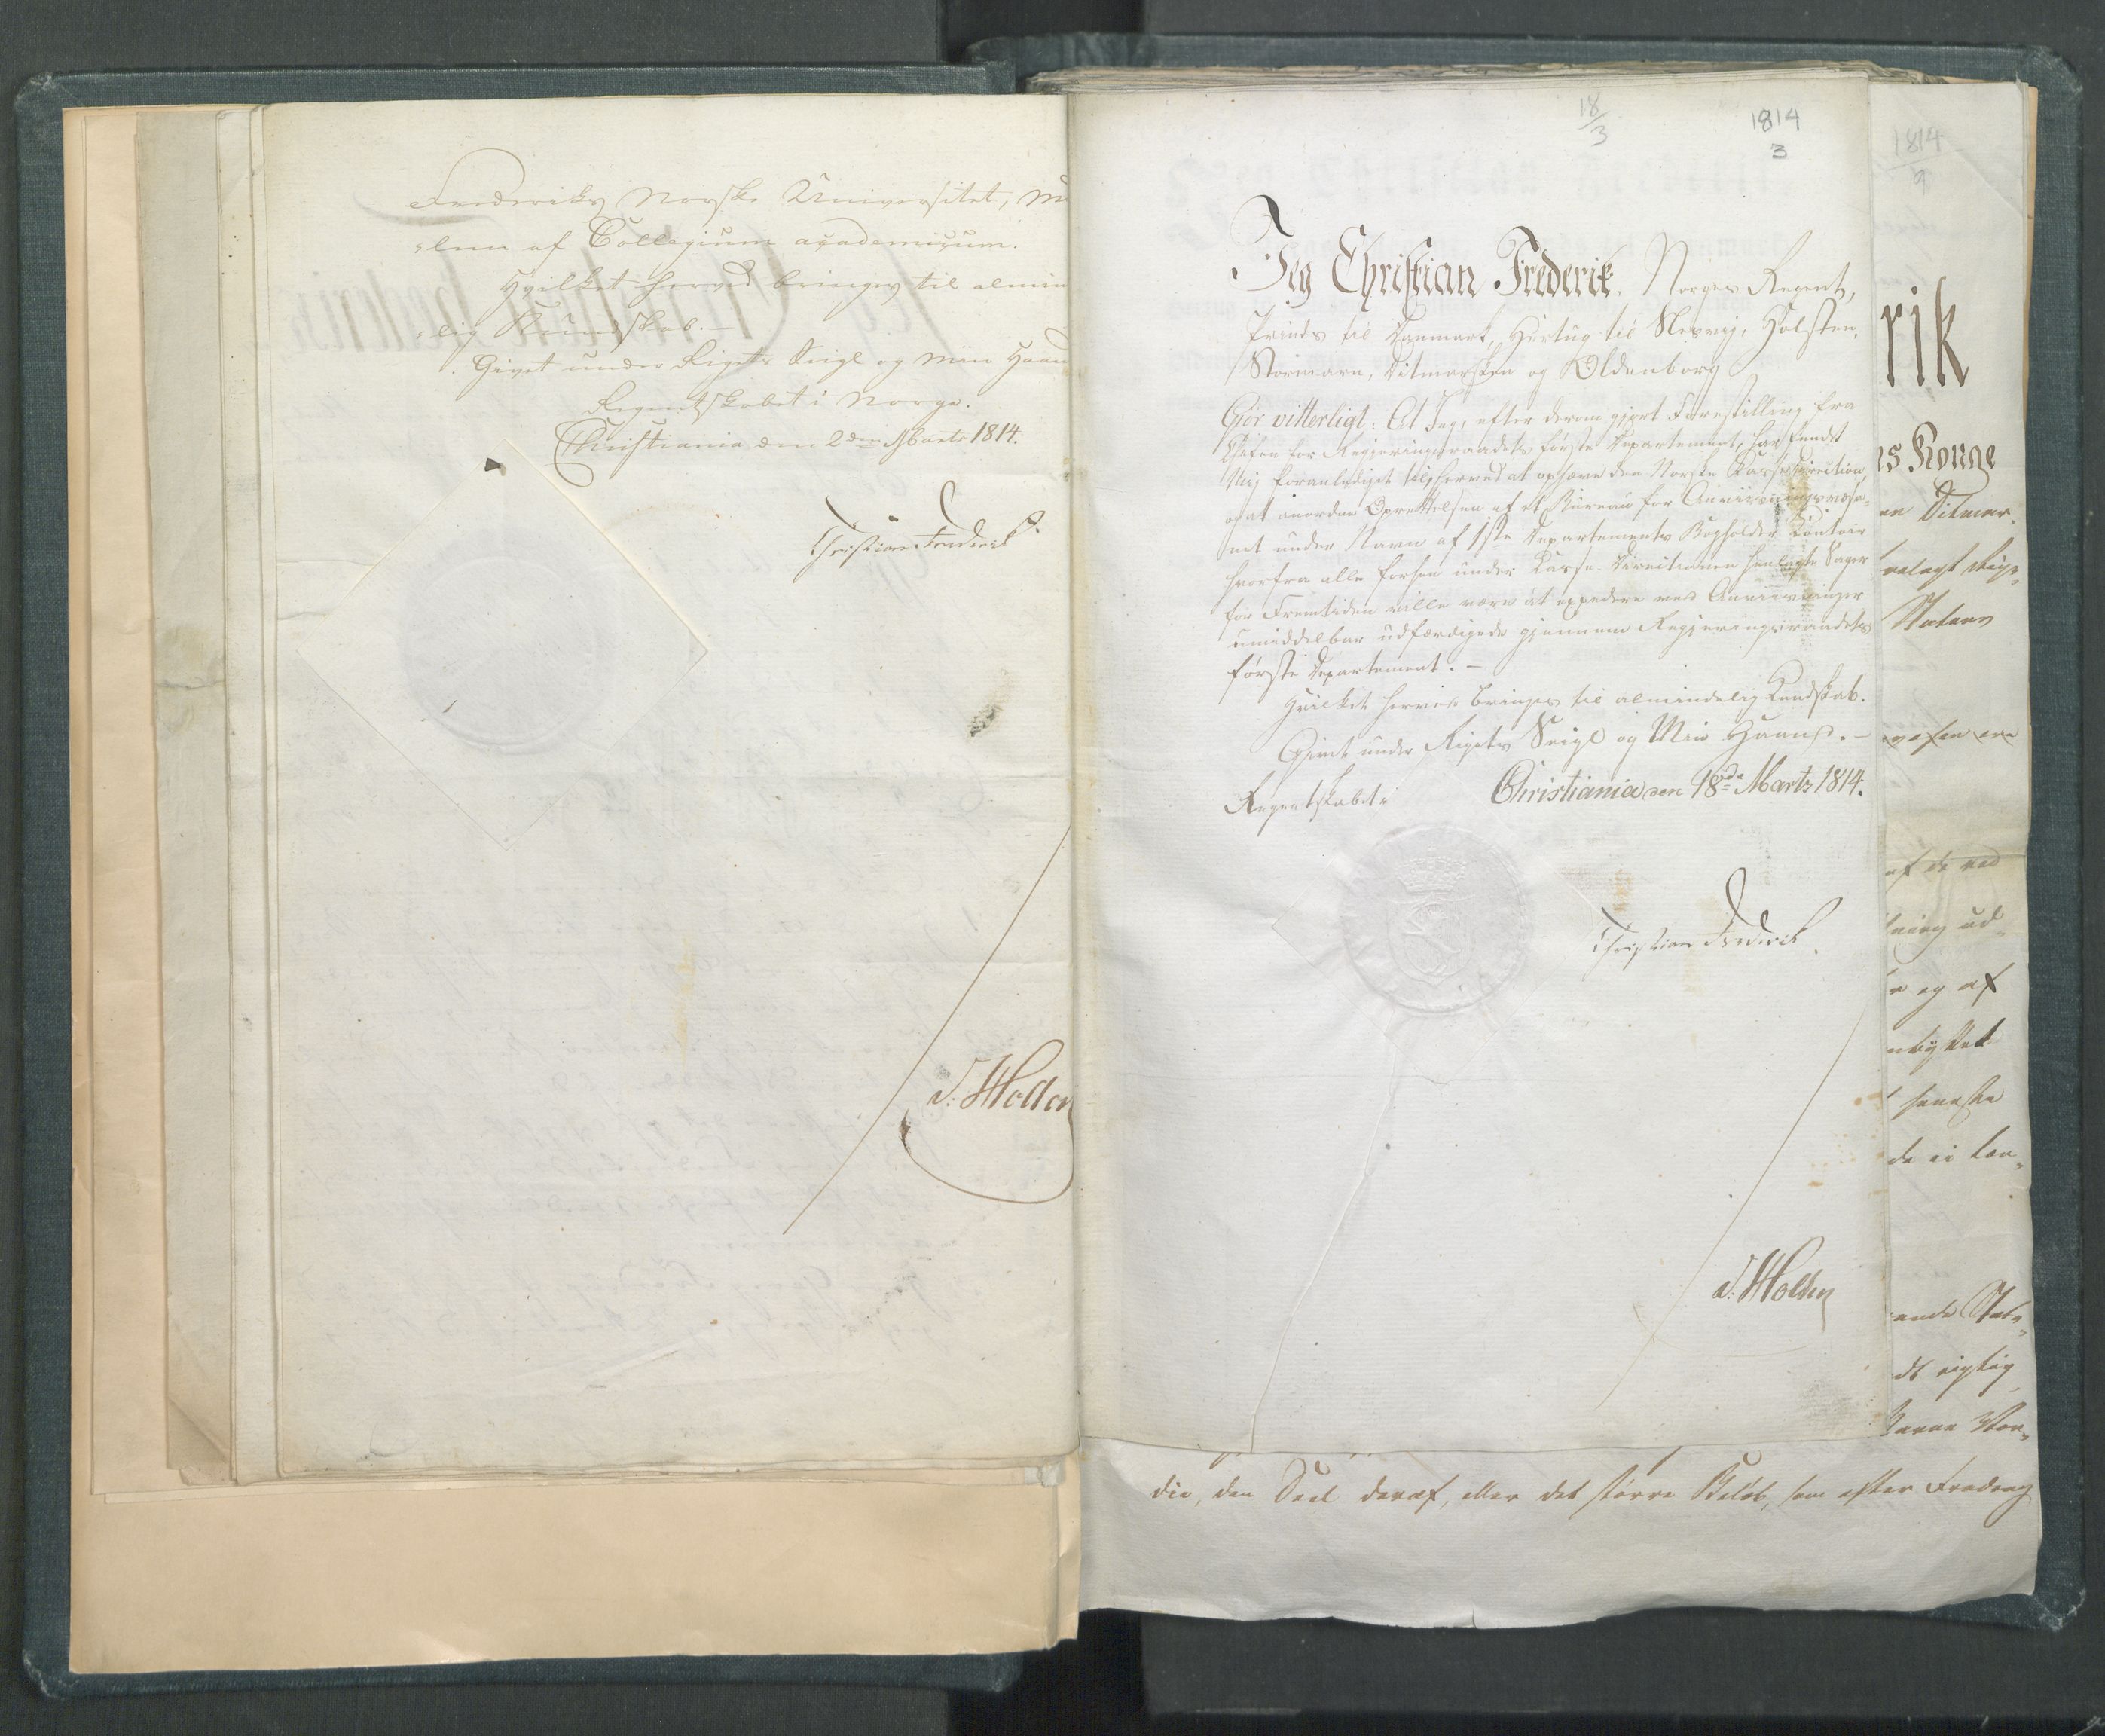 Frederiks Norske Universitet, M
elen af Collegium academicum.
Hvilket herved bringes til almin
elig Kundskab.—
Givet under Rigets Seigl og Min Haan
Regentskabet i Norge.
Christiania den 2den Marts 1814.
Christian Frederik
v. Holten
18/3
1814
3
Jeg Christian Frederik, Norges Regent,
Prinds til Danmark, Hertug til Slesvig, Holsten,
Stormarn, Ditmarsken og Oldenborg
Gjör vitterligt: At Jeg, efter derom gjort Forestilling fra
Chefen for Regjeringsraadets første Departement, har fundet
Mig foranlediget til, herved at ophæve den Norske Casse Direction,
og at anordne Oprettelsen af et Bureau for Anviisningsvæse-
net under Navn af 1ste Departements Bogholder Contoir
hvorfra alle forhen under Casse-Directionen henlagte Sager
for Fremtiden ville være at expedere ved Anviisninger
umiddelbar udfærdigede gjennem Regjeringsraadets
første Departement.—
Hvilket herved bringes til almindelig Kundskab.
Givet under Rigets Seigl og Min Haand.—
Regentskabet i
Christiania den 18de Martz 1814.
Christian Frederik.
v. Holten
1814
9
rik
s Konge
en Ditmar-
Statens
af de ved
ning ud-
og af
seneste
ande Stats-
dt rigtig
die, den Deel deraf, eller det større Beløb, som efter Fradrag